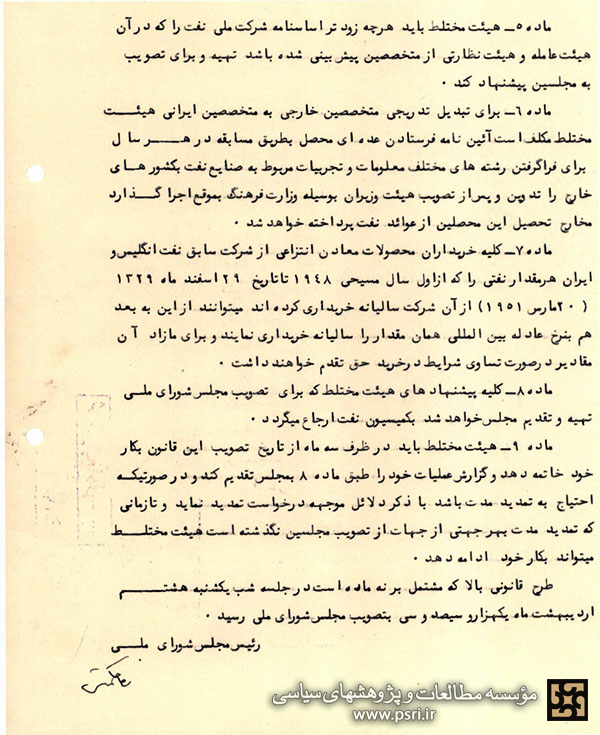 ماده ۵ــ هیئت مختلط باید هرچه زود تر اساسنامه شرکت ملی نفت را که در آن
هیئت عامله و هیئت نظارتی از متخصصین پیش بینی شده باشد تهیه و برای تصویب
به مجلسین پیشنهاد کند .
ماده ۶ــ برای تبدیل تدریجی متخصصین خارجی به متخصصین ایرانی هیئت
مختلط مکلف است آئین نامه فرستادن عده ای محصل بطریق مسابقه در هر سال
برای فراگرفتن رشته های مختلف معلومات و تجربیات مربوط به صنایع نفت بکشور های
خارج را تدوین و پس از تصویب هیئت وزیران بوسیله وزارت فرهنگ بموقع اجرا گذارد
مخارج تحصیل این محصلین از عوائد نفت پرداخته خواهد شد .
ماده ۷ــ کلیه خریداران محصولات معادن انتزاعی از شرکت سابق نفت انگلیس و
ایران هر مقدار نفتی را که از اول سال مسیحی ۱۹۴۸ تا تاریخ ۲۹ اسفند ماه ۱۳۲۹
( ۲۰ مارس ۱۹۵۱) از آن شرکت سالیانه خریداری کرده اند میتوانند از این به بعد
هم بنرخ عادله بین المللی همان مقدار را سالیانه خریداری نمایند و برای مازاد آن
مقادیر در صورت تساوی شرایط در خرید حق تقدم خواهند داشت .
ماده ۸ــ کلیه پیشنهاد های هیئت مختلط که برای تصویب مجلس شورای ملی
تهیه و تقدیم مجلس خواهد شد بکمیسیون نفت ارجاع میگردد .
ماده ۹ــ هیئت مختلط باید در ظرف سه ماه از تاریخ تصویب این قانون بکار
خود خاتمه دهد و گزارش عملیات خود را طبق ماده ۸ بمجلس تقدیم کند و در صورتیکه
احتیاج به تمدید مدت باشد با ذکر دلائل موجهه درخواست تمدید نماید و تا زمانی
که تمدید مدت بهر جهتی از جهات از تصویب مجلسین نگذشته است هیئت مختلط
میتواند بکار خود ادامه دهد .
طرح قانونی بالا که مشتمل بر نه ماده است در جلسه شب یکشنبه هشتم
اردیبهشت ماه یکهزارو سیصد و سی بتصویب مجلس شورای ملی رسید .
رئیس مجلس شورای ملی
مؤسسه مطالعات و پژوهشهای سیاسی
www.psri.ir